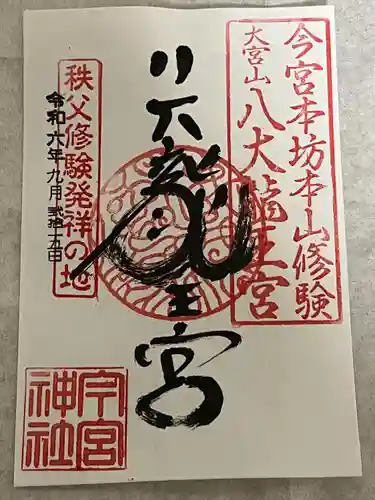 今宮本坊本山修験
大宮山
八大龍王宮
八大龍王宮
秩父修験発祥の地
令和六年九月弐拾五日
今宮
神社